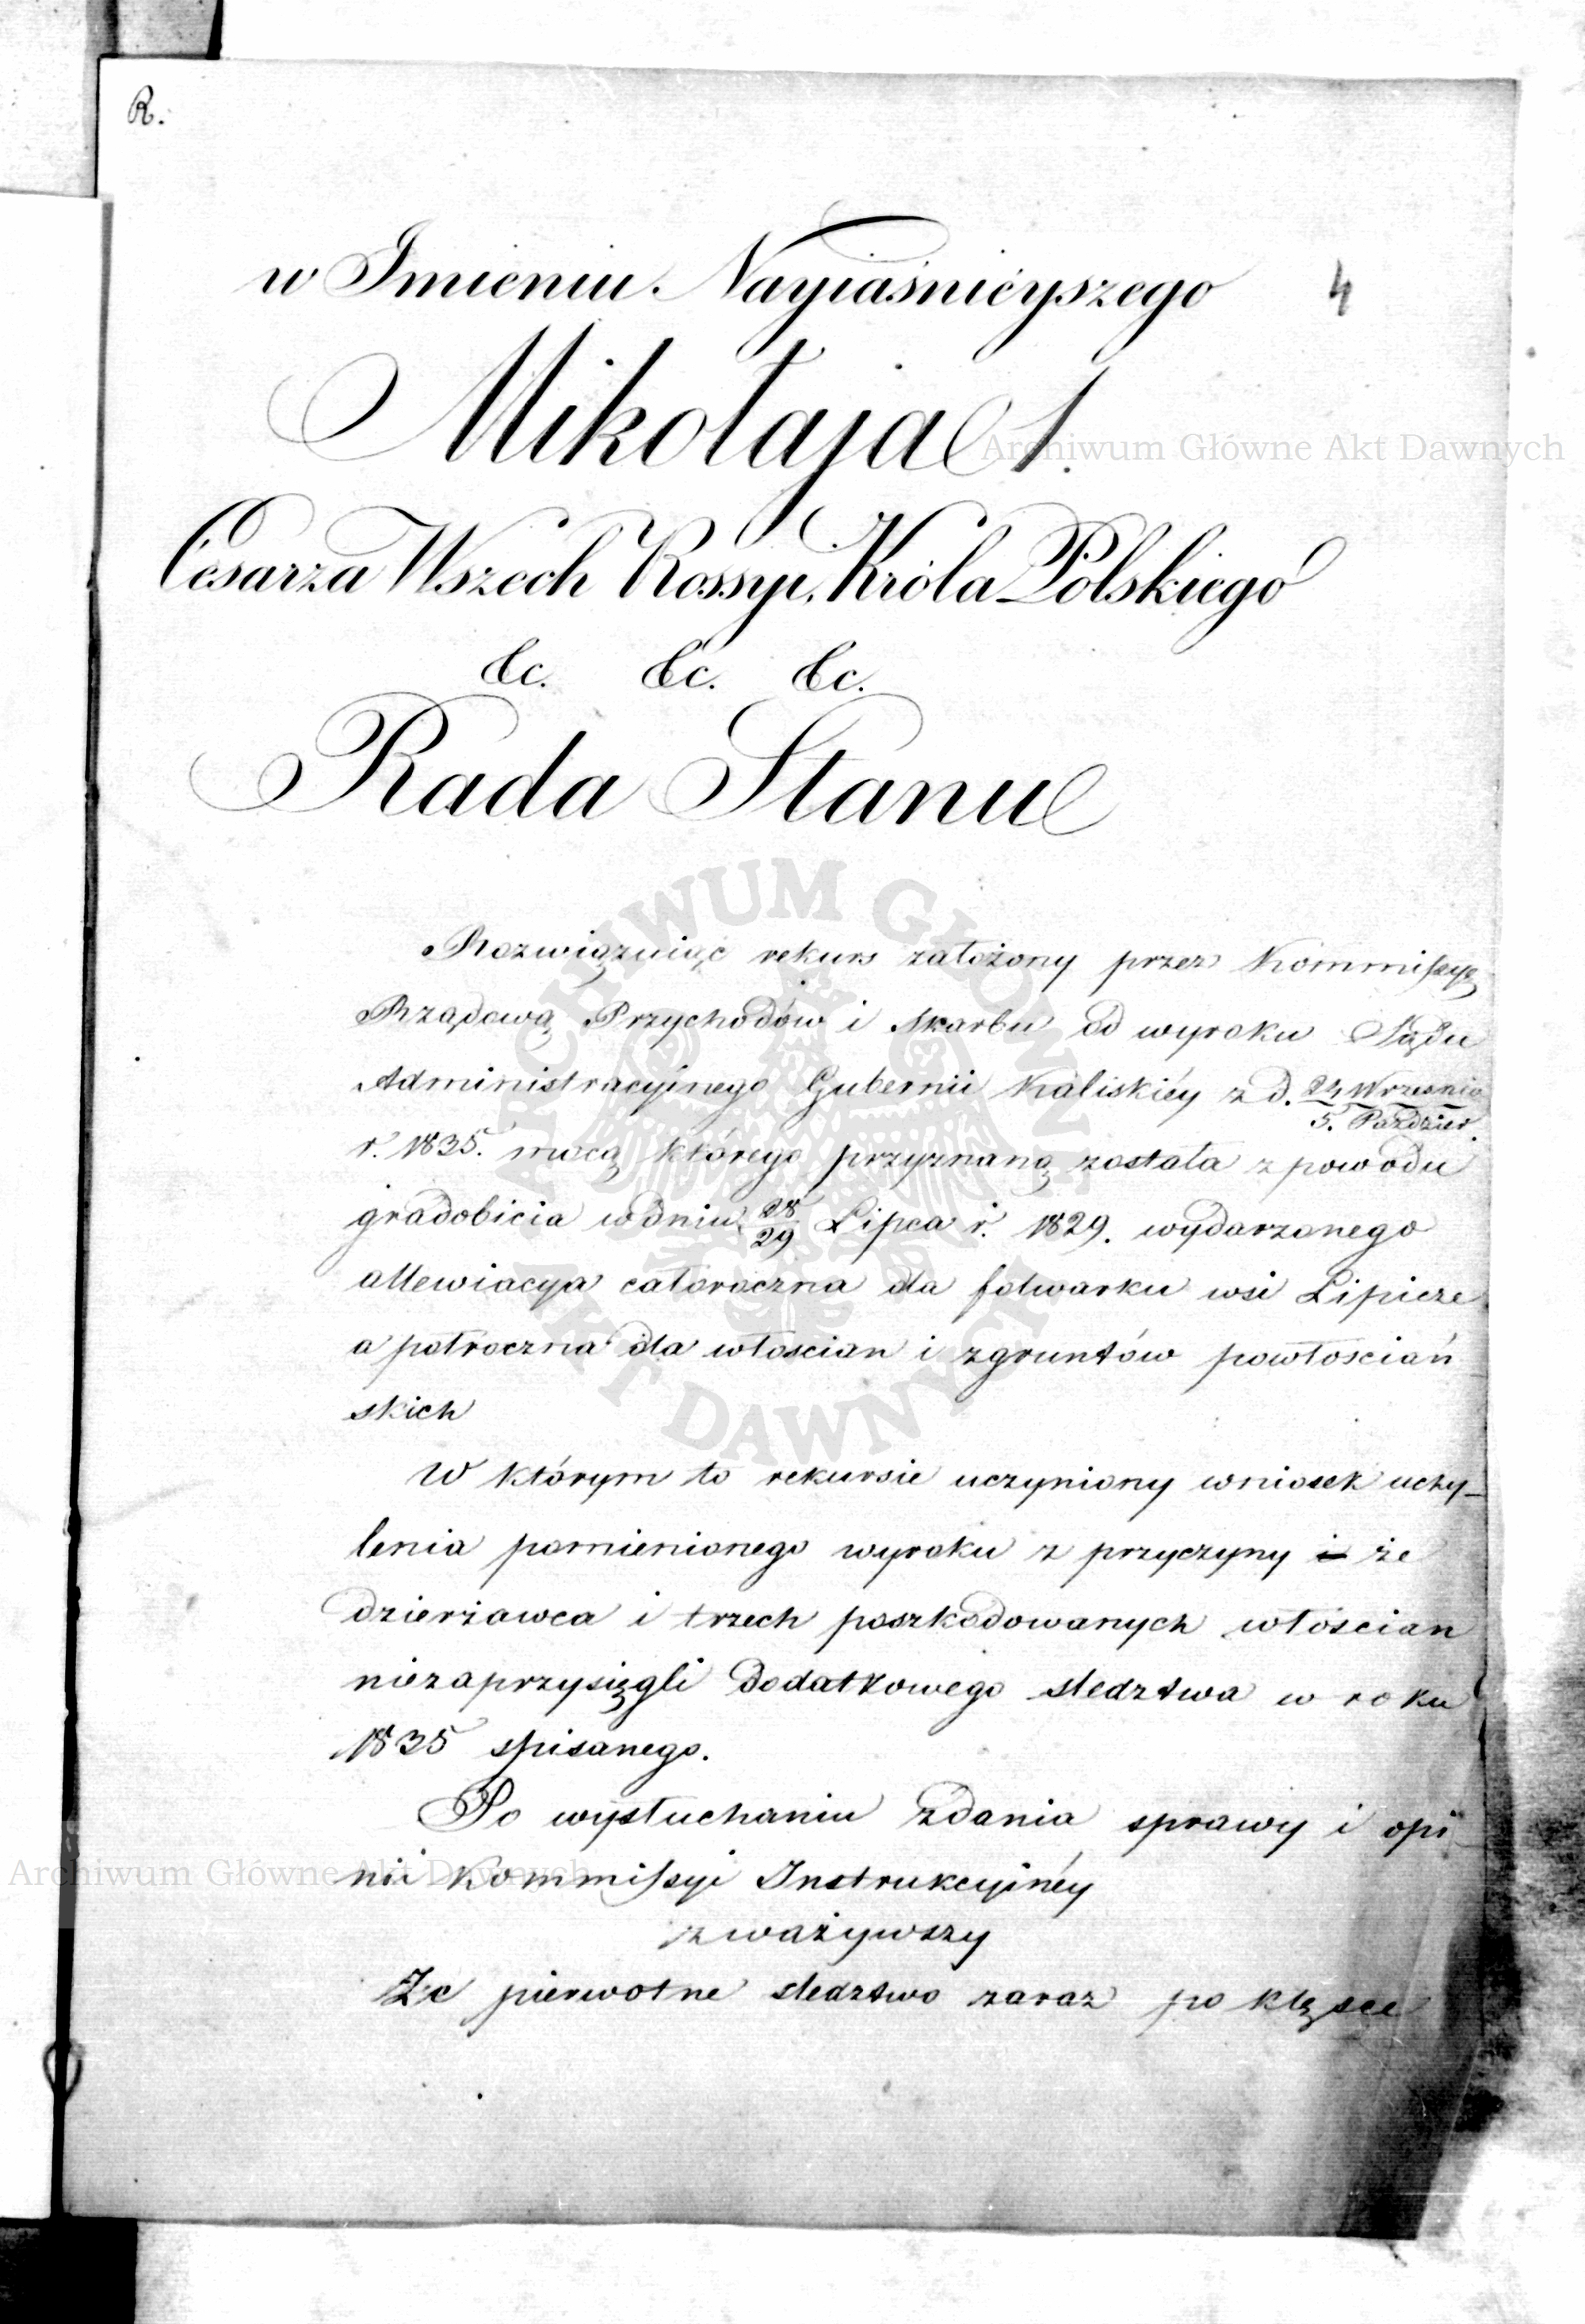 R.
w Imieniu Nayiaśnieyszego 4
Mikołaja I.
Cesarza Wszech Rossyi, Króla Polskiego
&c. &c. &c.
Rada Stanu
Rozwiązuiąc rekurs założony przez Kommissyą
Rządową Przychodów i Skarbu od wyroku Sądu
Administracyinego Gubernii Kaliskiéy z d. 24 Września
5. Paździer.
r. 1835. mocą którego przyznaną została z powodu
gradobicia w dniu 28/29 Lipca r. 1829. wydarzonego
allewiacya całoroczna dla folwarku wsi Lipicze
a półroczna dla włoscian i zgruntów powłościań
skich
W którym to rekursie uczyniony wniosek uchy-
lenia pomienionego wyroku z przyczyny że
dzierżawca i trzech poszkodowanych włóscian
niezaprzysięgli dodatkowego sledztwa w roku
1835 spisanego.
Po wysłuchaniu zdania sprawy i opi
nii Kommissyi Instrukcyinéy
zważywszy
Że pierwotne sledztwo zaraz po klęsce
Archiwum Główne Akt Dawnych
ARCHIWUM GŁÓWNE AKT DAWNYCH
Archiwum Główne Akt Dawnych